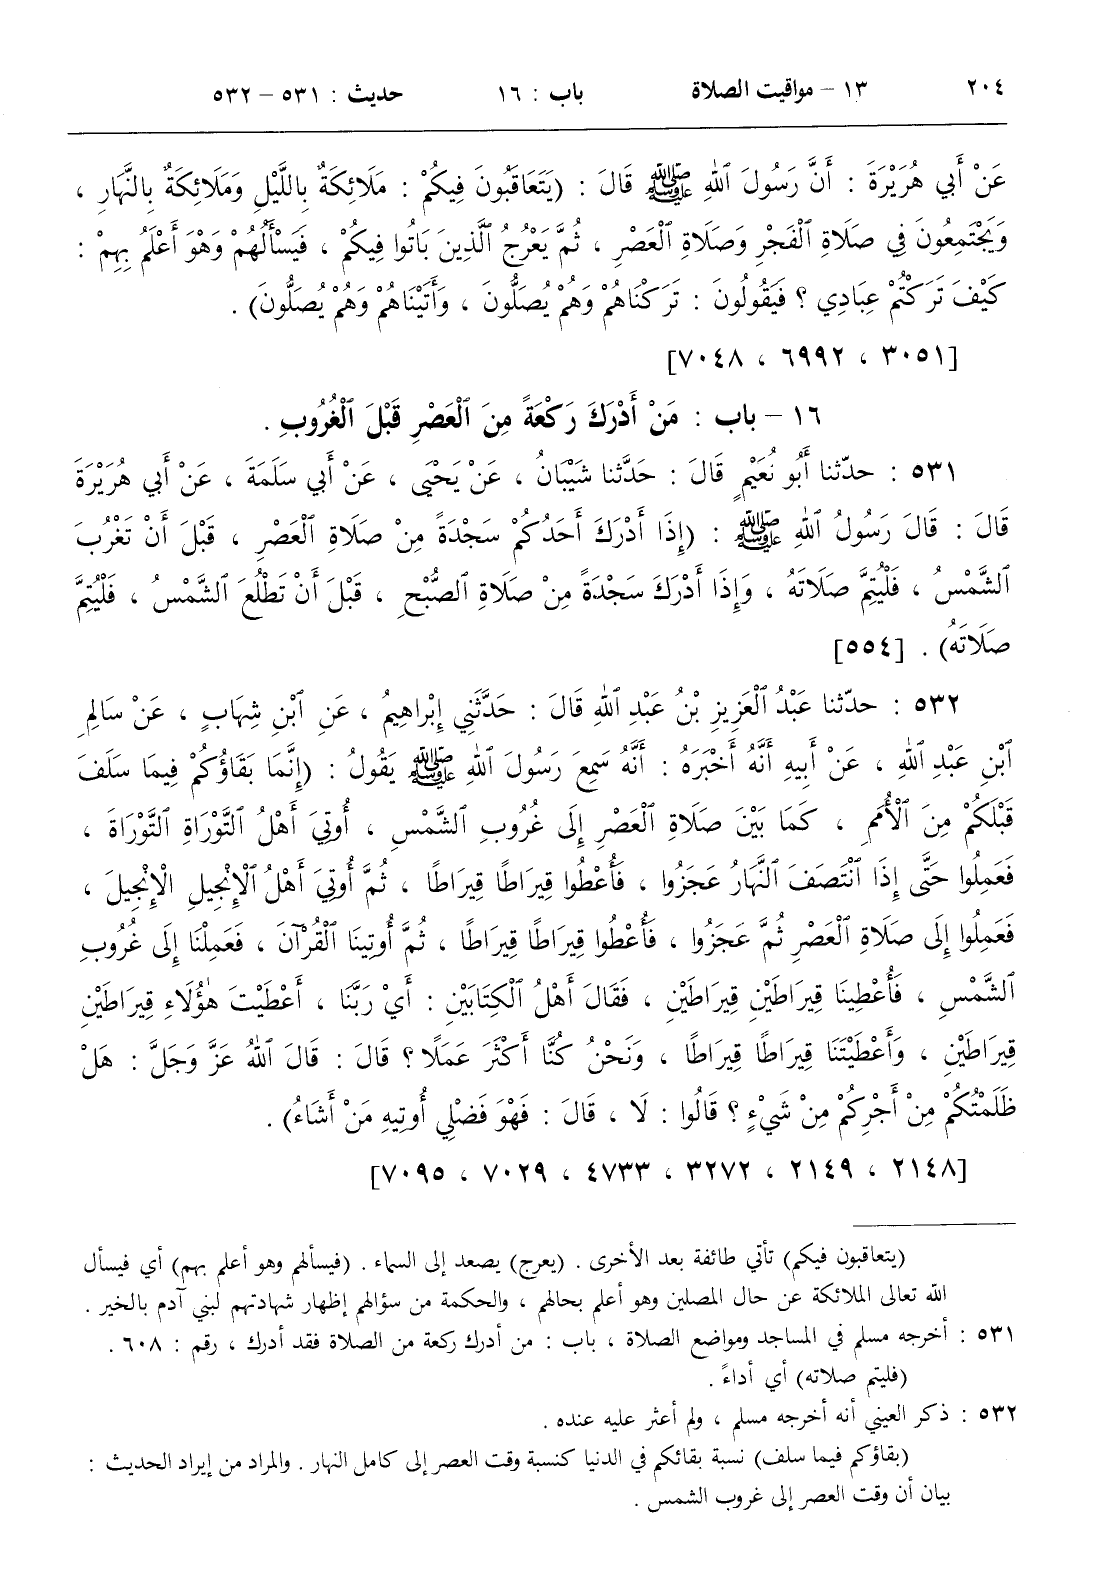 ٢٠٤ ١٣ – مواقيت الصلاة باب : ١٦ حديث : ٥٣١ – ٥٣٢
عَنْ أَبِي هُرَيْرَةَ : أَنَّ رَسُولَ ٱللهِ ﷺ قَالَ : (يَتَعَاقَبُونَ فِيكُمْ : مَلَائِكَةٌ بِاللَّيْلِ وَمَلَائِكَةٌ بِالنَّهَارِ ،
وَيَجْتَمِعُونَ فِي صَلَاةِ ٱلْفَجْرِ وَصَلَاةِ ٱلْعَصْرِ ، ثُمَّ يَعْرُجُ ٱلَّذِينَ بَاتُوا فِيكُمْ ، فَيَسْأَلُهُمْ وَهْوَ أَعْلَمُ بِهِمْ :
كَيْفَ تَرَكْتُمْ عِبَادِي ؟ فَيَقُولُونَ : تَرَكْنَاهُمْ وَهُمْ يُصَلُّونَ ، وَأَتَيْنَاهُمْ وَهُمْ يُصَلُّونَ) .
[٣٠٥١ ، ٦٩٩٢ ، ٧٠٤٨]
١٦ – باب : مَنْ أَدْرَكَ رَكْعَةً مِنَ ٱلْعَصْرِ قَبْلَ ٱلْغُرُوبِ .
٥٣١ : حدّثنا أَبُو نُعَيْمٍ قَالَ : حَدَّثَنا شَيْبَانُ ، عَنْ يَحْيَى ، عَنْ أَبِي سَلَمَةَ ، عَنْ أَبِي هُرَيْرَةَ
قَالَ : قَالَ رَسُولُ ٱللهِ ﷺ : (إِذَا أَدْرَكَ أَحَدُكُمْ سَجْدَةً مِنْ صَلَاةِ ٱلْعَصْرِ ، قَبْلَ أَنْ تَغْرُبَ
ٱلشَّمْسُ ، فَلْيُتِمَّ صَلَاتَهُ ، وَإِذَا أَدْرَكَ سَجْدَةً مِنْ صَلَاةِ ٱلصُّبْحِ ، قَبْلَ أَنْ تَطْلُعَ ٱلشَّمْسُ ، فَلْيُتِمَّ
صَلَاتَهُ) . [٥٥٤]
٥٣٢ : حدّثنا عَبْدُ ٱلْعَزِيزِ بْنُ عَبْدِ ٱللهِ قَالَ : حَدَّثَنِي إِبْرَاهِيمُ ، عَنِ ٱبْنِ شِهَابٍ ، عَنْ سَالِمِ
ٱبْنِ عَبْدِ ٱللهِ ، عَنْ أَبِيهِ أَنَّهُ أَخْبَرَهُ : أَنَّهُ سَمِعَ رَسُولَ ٱللهِ ﷺ يَقُولُ : (إِنَّمَا بَقَاؤُكُمْ فِيمَا سَلَفَ
قَبْلَكُمْ مِنَ ٱلْأُمَمِ ، كَمَا بَيْنَ صَلَاةِ ٱلْعَصْرِ إِلَى غُرُوبِ ٱلشَّمْسِ ، أُوتِيَ أَهْلُ ٱلتَّوْرَاةِ ٱلتَّوْرَاةَ ،
فَعَمِلُوا حَتَّى إِذَا ٱنْتَصَفَ ٱلنَّهَارُ عَجَزُوا ، فَأُعْطُوا قِيرَاطًا قِيرَاطًا ، ثُمَّ أُوتِيَ أَهْلُ ٱلْإِنْجِيلِ الْإِنْجِيلَ ،
فَعَمِلُوا إِلَى صَلَاةِ ٱلْعَصْرِ ثُمَّ عَجَزُوا ، فَأُعْطُوا قِيرَاطًا قِيرَاطًا ، ثُمَّ أُوتِينَا ٱلْقُرْآنَ ، فَعَمِلْنَا إِلَى غُرُوبِ
ٱلشَّمْسِ ، فَأُعْطِينَا قِيرَاطَيْنِ قِيرَاطَيْنِ ، فَقَالَ أَهْلُ ٱلْكِتَابَيْنِ : أَيْ رَبَّنَا ، أَعْطَيْتَ هٰؤُلَاءِ قِيرَاطَيْنِ
قِيرَاطَيْنِ ، وَأَعْطَيْتَنَا قِيرَاطًا قِيرَاطًا ، وَنَحْنُ كُنَّا أَكْثَرَ عَمَلًا ؟ قَالَ : قَالَ ٱللهُ عَزَّ وَجَلَّ : هَلْ
ظَلَمْتُكُمْ مِنْ أَجْرِكُمْ مِنْ شَيْءٍ ؟ قَالُوا : لَا ، قَالَ : فَهْوَ فَضْلِي أُوتِيهِ مَنْ أَشَاءُ) .
[٢١٤٨ ، ٢١٤٩ ، ٣٢٧٢ ، ٤٧٣٣ ، ٧٠٢٩ ، ٧٠٩٥]
(يتعاقبون فيكم) تأتي طائفة بعد الأخرى . (يعرج) يصعد إلى السماء . (فيسألهم وهو أعلم بهم) أي فيسأل
الله تعالى الملائكة عن حال المصلين وهو أعلم بحالهم ، والحكمة من سؤالهم إظهار شهادتهم لبني آدم بالخير .
٥٣١ : أخرجه مسلم في المساجد ومواضع الصلاة ، باب : من أدرك ركعة من الصلاة فقد أدرك ، رقم : ٦٠٨ .
(فليتم صلاته) أي أداءً .
٥٣٢ : ذكر العيني أنه أخرجه مسلم ، ولم أعثر عليه عنده .
(بقاؤكم فيما سلف) نسبة بقائكم في الدنيا كنسبة وقت العصر إلى كامل النهار . والمراد من إيراد الحديث :
بيان أن وقت العصر إلى غروب الشمس .